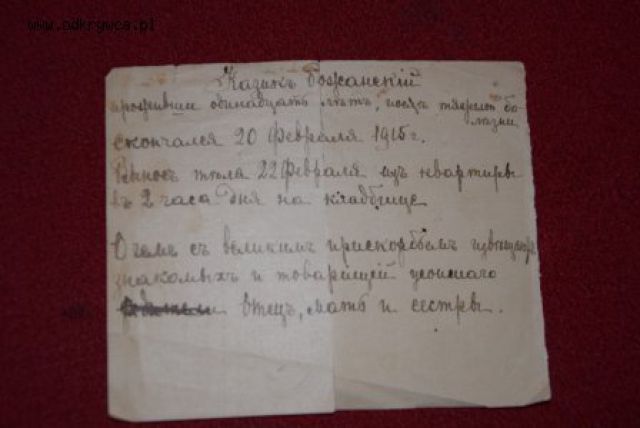 www.odkrywca.pl
Казикъ Божанскій
проживши одинадцать лѣтъ, послѣ тяжелой бо-
лезни
скончался 20 Февраля 1915 г.
Выносъ тѣла 22 Февраля изъ квартиры
въ 2 часа дня на кладбище
О чемъ съ великимъ прискорбіемъ
знакомыхъ и товарищей
отецъ, мать и сестры.